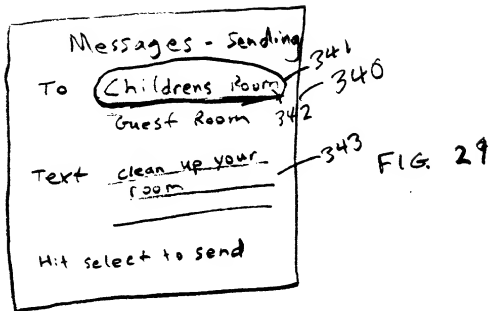 Messages - Sending
341
To Childrens Room
340
Guest Room 342
Text clean up your 343
room
FIG. 29
Hit select to send